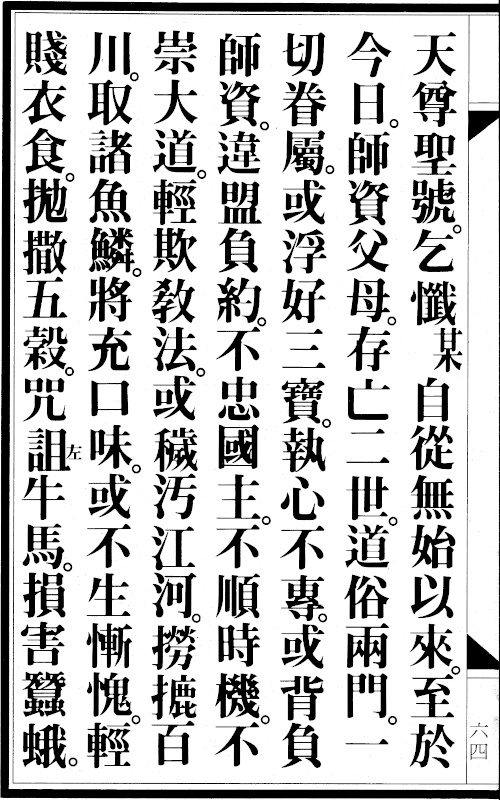 天尊聖號。乞懺某自從無始以來。至於
今日。師資父母。存亡二世。道俗兩門。一
切眷屬。或浮好三寶。執心不專。或背負
師資。違盟負約。不忠國主。不順時機。不
崇大道。輕欺教法。或穢污江河。撈摝百
川。取諸魚鱗。將充口味。或不生慚愧。輕
賤衣食。拋撒五穀。咒詛左牛馬。損害蠶蛾。
六四